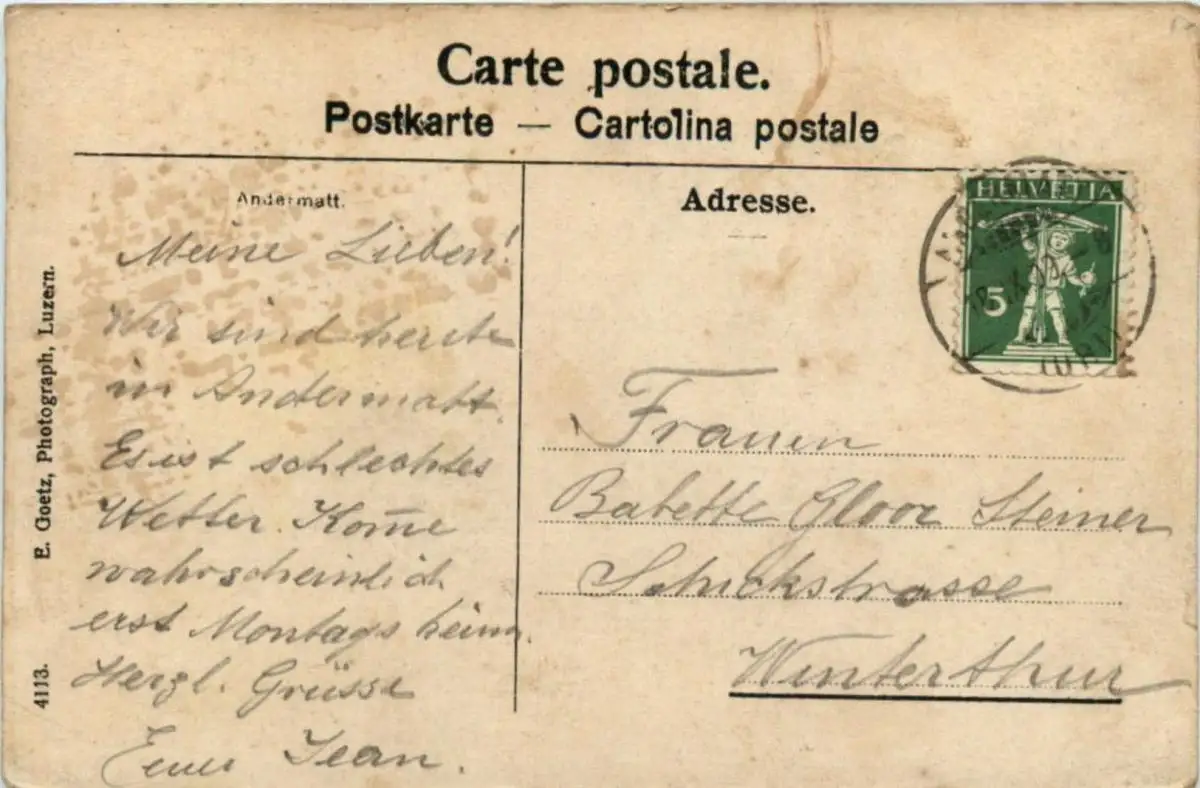 Carte postale.
Postkarte — Cartolina postale
Andermatt.
Meine Lieben!
Wir sind heute
in Andermatt.
Es ist schlechtes
Wetter. Kom̄e
wahrscheinlich
erst Montags heim.
Herzl. Grüsse
Euer Jean.
E. Goetz, Photograph, Luzern.
4113.
Adresse.
HELVETIA
5
Frauen
Babette Gloor Steiner
Schickstrasse
Winterthur